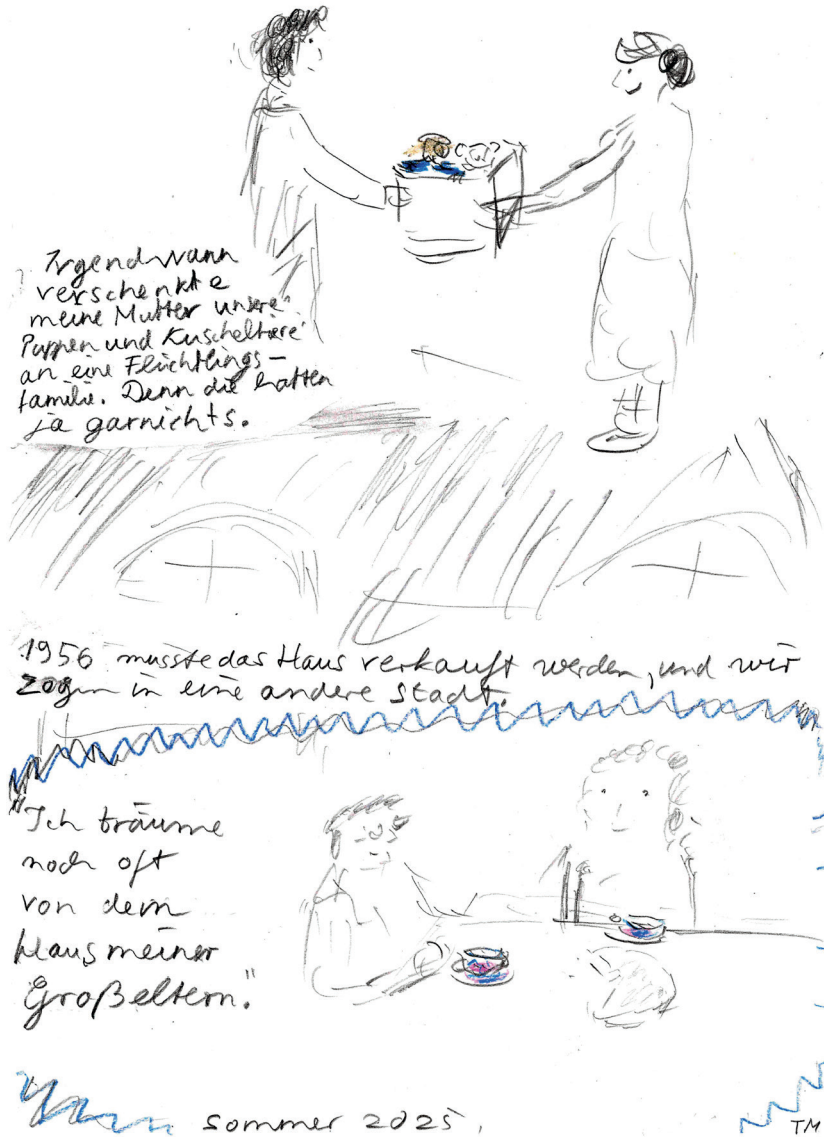 Irgendwann
verschenkte
meine Mutter unsere
Puppen und Kuscheltiere
an eine Flüchtlings-
familie. Denn die hatten
ja garnichts.
1956 musste das Haus verkauft werden, und wir
zogen in eine andere Stadt.
"Ich träume
noch oft
von dem
Haus meiner
Großeltern."
Sommer 2025.
TM